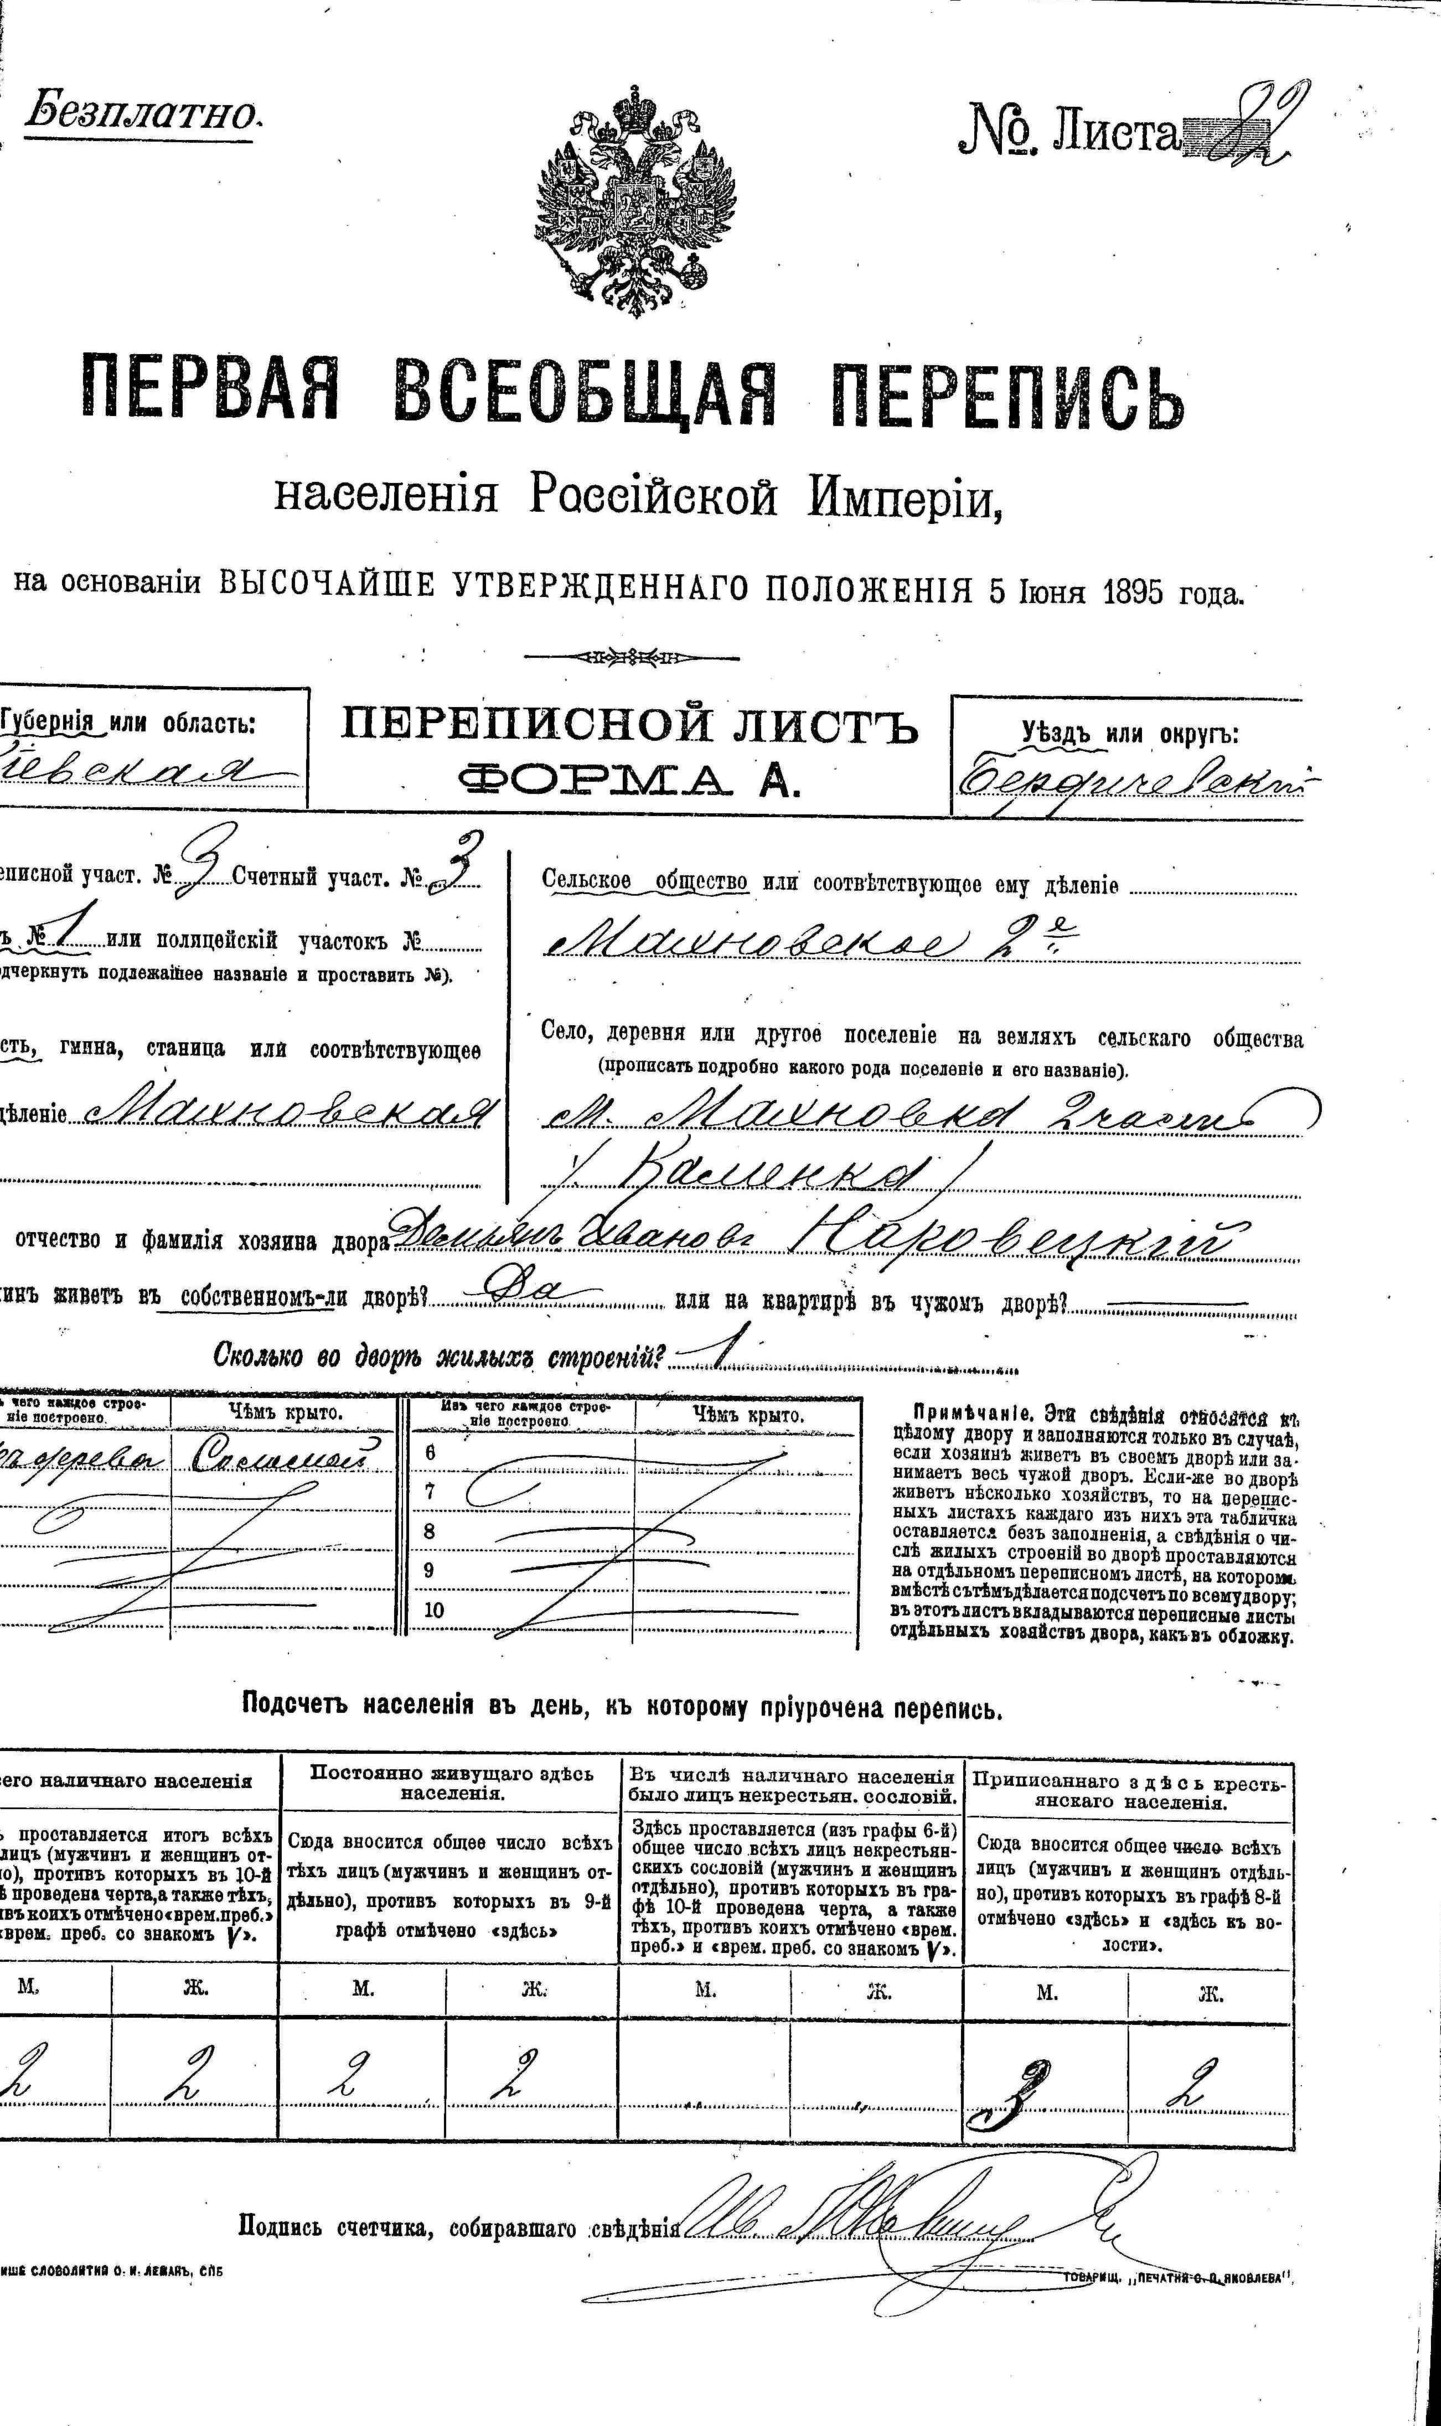 Безплатно.
№. Листа 82
ПЕРВАЯ ВСЕОБЩАЯ ПЕРЕПИСЬ
населенія Россійской Имперіи,
на основаніи ВЫСОЧАЙШЕ УТВЕРЖДЕННАГО ПОЛОЖЕНІЯ 5 Іюня 1895 года.
Губернія или область:
іевская
ПЕРЕПИСНОЙ ЛИСТЪ
ФОРМА А.
Уѣздъ или округъ:
Бердичевскій
еписной участ. № 3 Счетный участ. № 3
ъ № 1 или полицейскій участокъ №
одчеркнуть подлежащее названіе и проставить №).
сть, гмина, станица или соотвѣтствующее
дѣленіе Махновская
Сельское общество или соотвѣтствующее ему дѣленіе
Махновское 2е
Село, деревня или другое поселеніе на земляхъ сельскаго общества
(прописать подробно какого рода поселеніе и его названіе).
м. Махновка 2 часть
/ Каменка /
отчество и фамилія хозяина двора Демьянъ Ивановъ Наровецкій
инъ живетъ въ собственномъ-ли дворѣ? Да или на квартирѣ въ чужомъ дворѣ? —
Сколько во дворѣ жилыхъ строеній? 1
ъ чего каждое строе-
ніе построено.
Чѣмъ крыто.
Изъ чего каждое строе-
ніе построено
Чѣмъ крыто.
дерева Соломой
6
7
8
9
10
Примѣчаніе. Эти свѣдѣнія относятся къ
цѣлому двору и заполняются только въ случаѣ,
если хозяинъ живетъ въ своемъ дворѣ или за-
нимаетъ весь чужой дворъ. Если-же во дворѣ
живетъ нѣсколько хозяйствъ, то на перепис-
ныхъ листахъ каждаго изъ нихъ эта табличка
оставляется безъ заполненія, а свѣдѣнія о чи-
слѣ жилыхъ строеній во дворѣ проставляются
на отдѣльномъ переписномъ листѣ, на которомъ
вмѣстѣ съ тѣмъ дѣлается подсчетъ по всему двору;
въ этотъ листъ вкладываются переписные листы
отдѣльныхъ хозяйствъ двора, какъ въ обложку.
Подсчетъ населенія въ день, къ которому пріурочена перепись.
его наличнаго населенія
ь проставляется итогъ всѣхъ
лицъ (мужчинъ и женщинъ от-
но), противъ которыхъ въ 10-й
ѣ проведена черта, а также тѣхъ,
ивъ коихъ отмѣчено «врем. преб.»
«врем. преб. со знакомъ V».
Постоянно живущаго здѣсь
населенія.
Сюда вносится общее число всѣхъ
тѣхъ лицъ (мужчинъ и женщинъ от-
дѣльно), противъ которыхъ въ 9-й
графѣ отмѣчено «здѣсь»
Въ числѣ наличнаго населенія
было лицъ некрестьян. сословій.
Здѣсь проставляется (изъ графы 6-й)
общее число всѣхъ лицъ некрестьян-
скихъ сословій (мужчинъ и женщинъ
отдѣльно), противъ которыхъ въ гра-
фѣ 10-й проведена черта, а также
тѣхъ, противъ коихъ отмѣчено «врем.
преб.» и «врем. преб. со знакомъ V».
Приписаннаго здѣсь кресть-
янскаго населенія.
Сюда вносится общее число всѣхъ
лицъ (мужчинъ и женщинъ отдѣль-
но), противъ которыхъ въ графѣ 8-й
отмѣчено «здѣсь» и «здѣсь къ во-
лости».
М. Ж. М. Ж. М. Ж. М. Ж.
2 2 2 2 „ „ 3 2
Подпись счетчика, собиравшаго свѣдѣнія
ИШЕ СЛОВОЛИТНИ О. И. ЛЕМАНЪ, СПБ
ТОВАРИЩ. „ПЕЧАТНЯ С. П. ЯКОВЛЕВА",